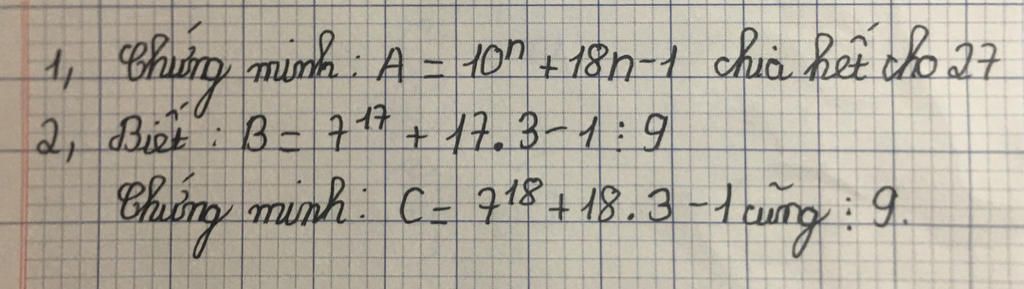 1, Chứng minh: A = 10ⁿ + 18n - 1 chia hết cho 27
2, Biết: B = 7¹⁷ + 17.3 - 1 ⋮ 9
Chứng minh: C = 7¹⁸ + 18.3 - 1 cũng ⋮ 9.